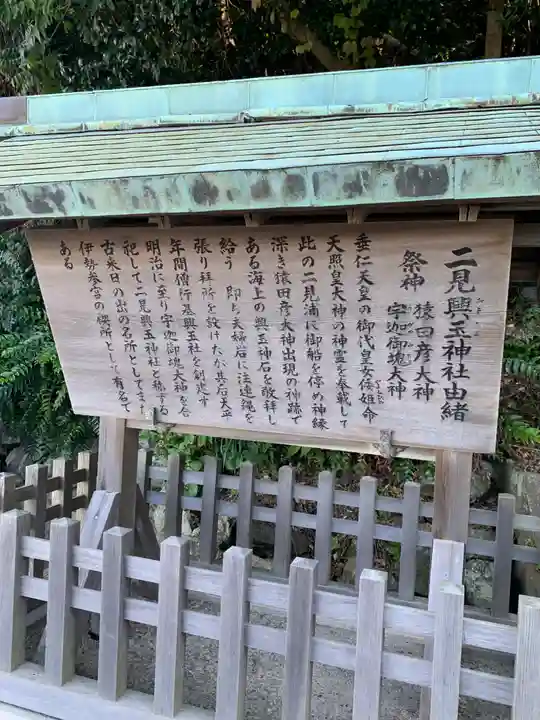 二見興玉神社由緒
祭神 猿田彦大神
宇迦御魂大神
垂仁天皇の御代皇女倭姫命
天照皇大神の神霊を奉戴して
此の二見浦に御船を停め神縁
深き猿田彦大神出現の神跡で
ある海上の興玉神石を敬拝し
給う 即ち夫婦石に注連縄を
張り拝所を設けたが其后天平
年間僧行基興玉社を創建す
明治に至り宇迦御魂大神を合
祀して二見興玉神社と称する
古来日の出の名所としてまた
伊勢参宮の禊所として有名で
ある